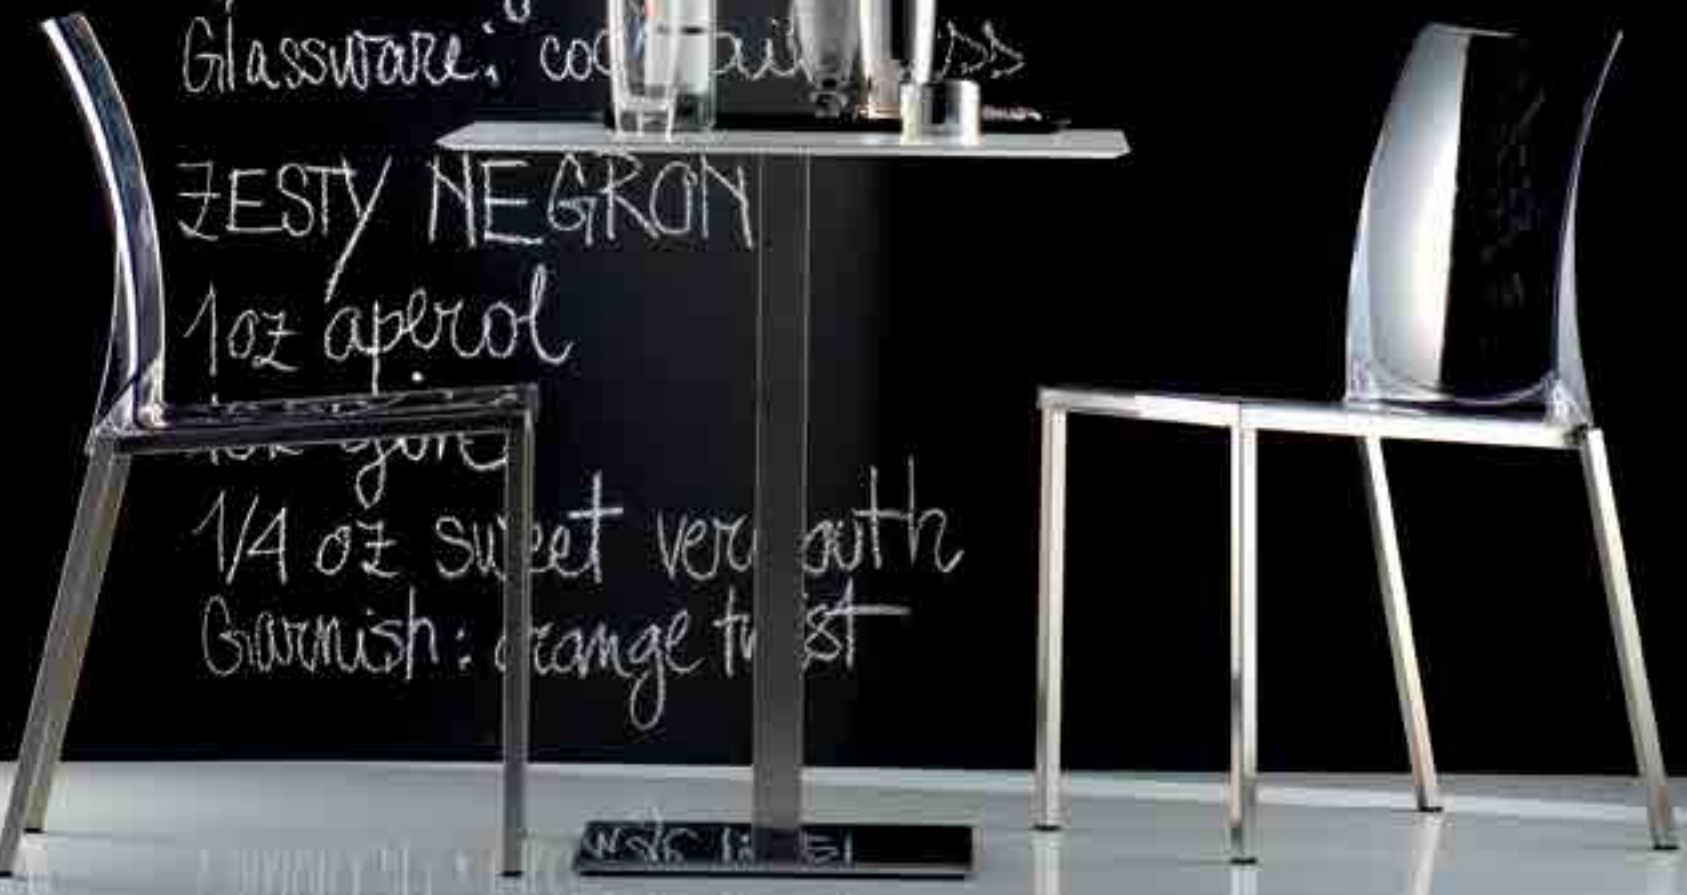 Glassware:
ZESTY NEGRON
1oz aperol
gin
1/4 oz sweet vermouth
Garnish: orange twist